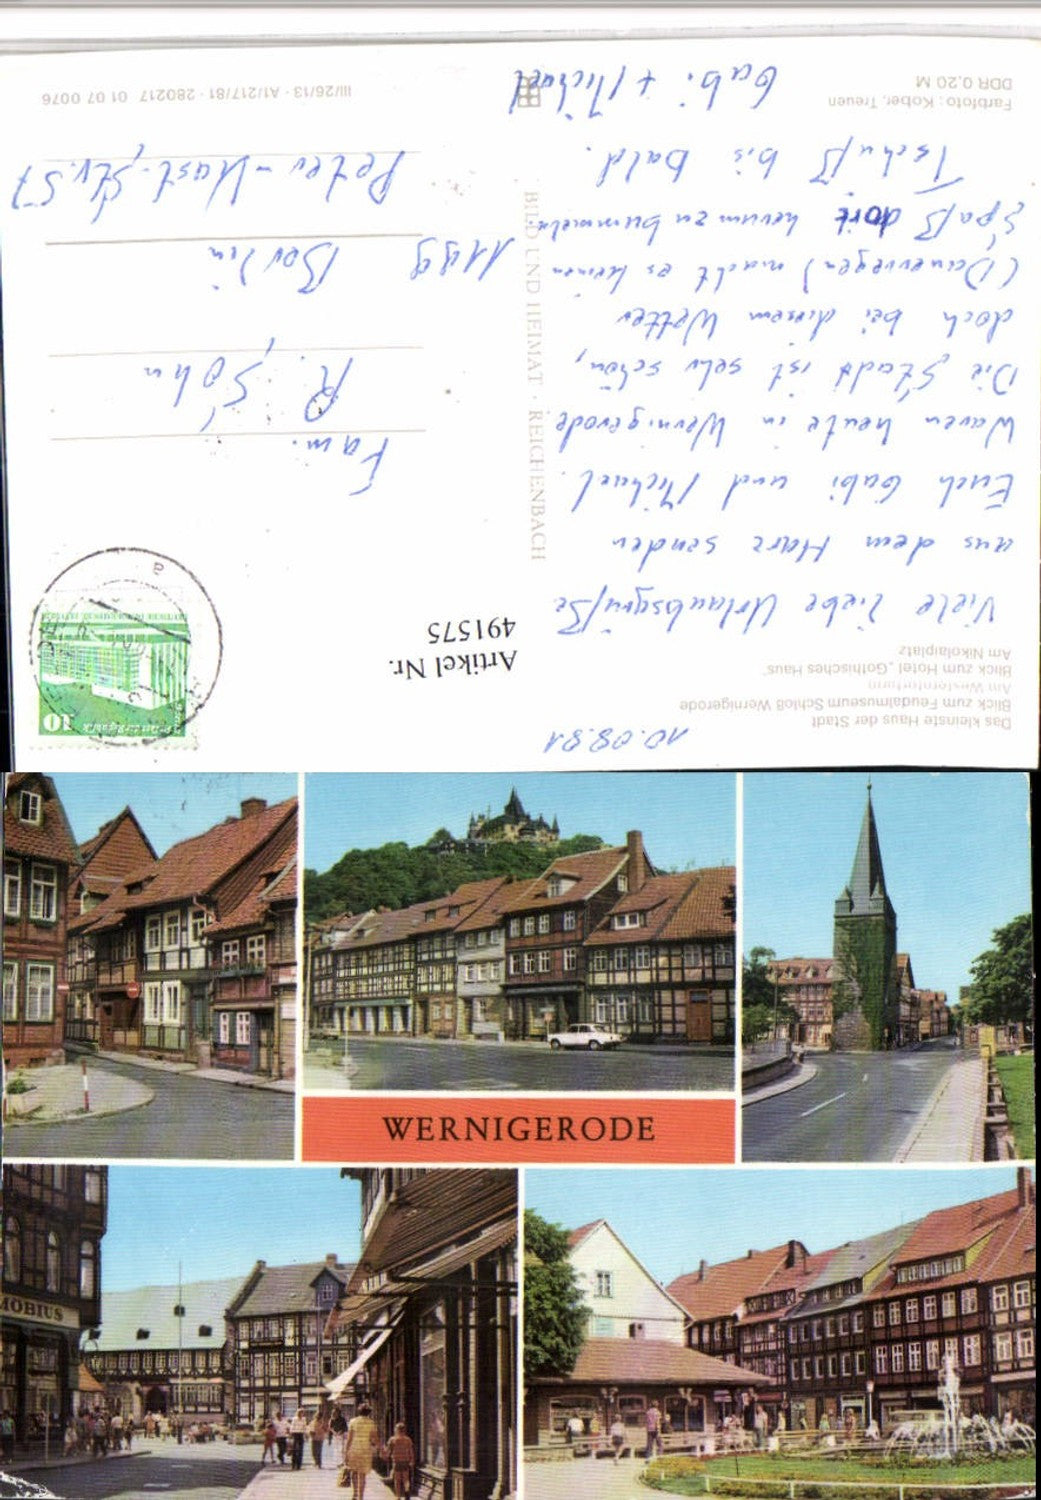 10.08.81
Das kleinste Haus der Stadt
Blick zum Feudalmuseum Schloß Wernigerode
Am Westerntorturm
Blick zum Hotel „Gothisches Haus"
Am Nikolaiplatz
Viele liebe Urlaubsgrüße
aus dem Harz senden
Euch Gabi und Michael.
Waren heute in Wernigerode
Die Stadt ist sehr schön,
doch bei diesem Wetter
(Dauerregen) macht es keinen
Spaß dort herumzubummeln.
Tschüß bis bald.
Gabi + Michael
Farbfoto: Kober, Treuen
DDR 0,20 M
BILD UND HEIMAT · REICHENBACH
Artikel Nr.
491575
10
Fam.
R. Sohn
1199 Berlin
Peter-Kast-Str. 57
III/26/13 · A1/217/81 · 280217 01 07 0076
WERNIGERODE
MÖBIUS